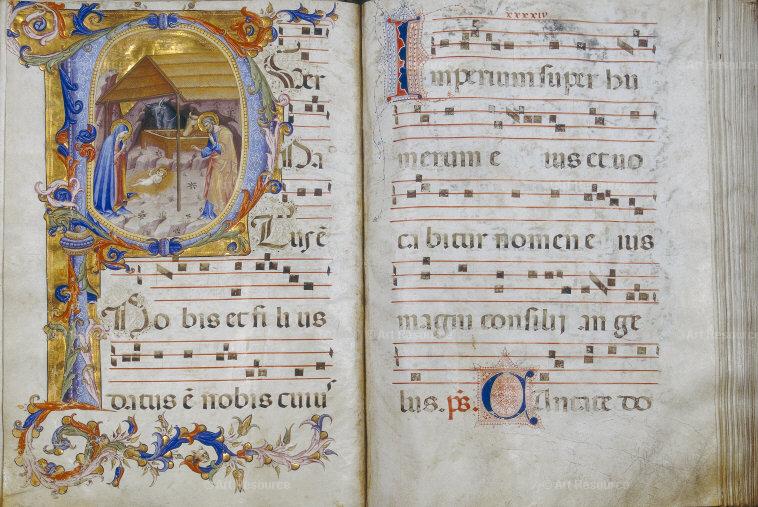 PUer
Na
Tus ē
No bis et fi li us
datus ē nobis cuiu
xxxxiv
Imperium super hu
merum e ius et uo
ca bitur nomen e ius
magni consilij an ge
lus. ps. Cantate do
© Art Resource